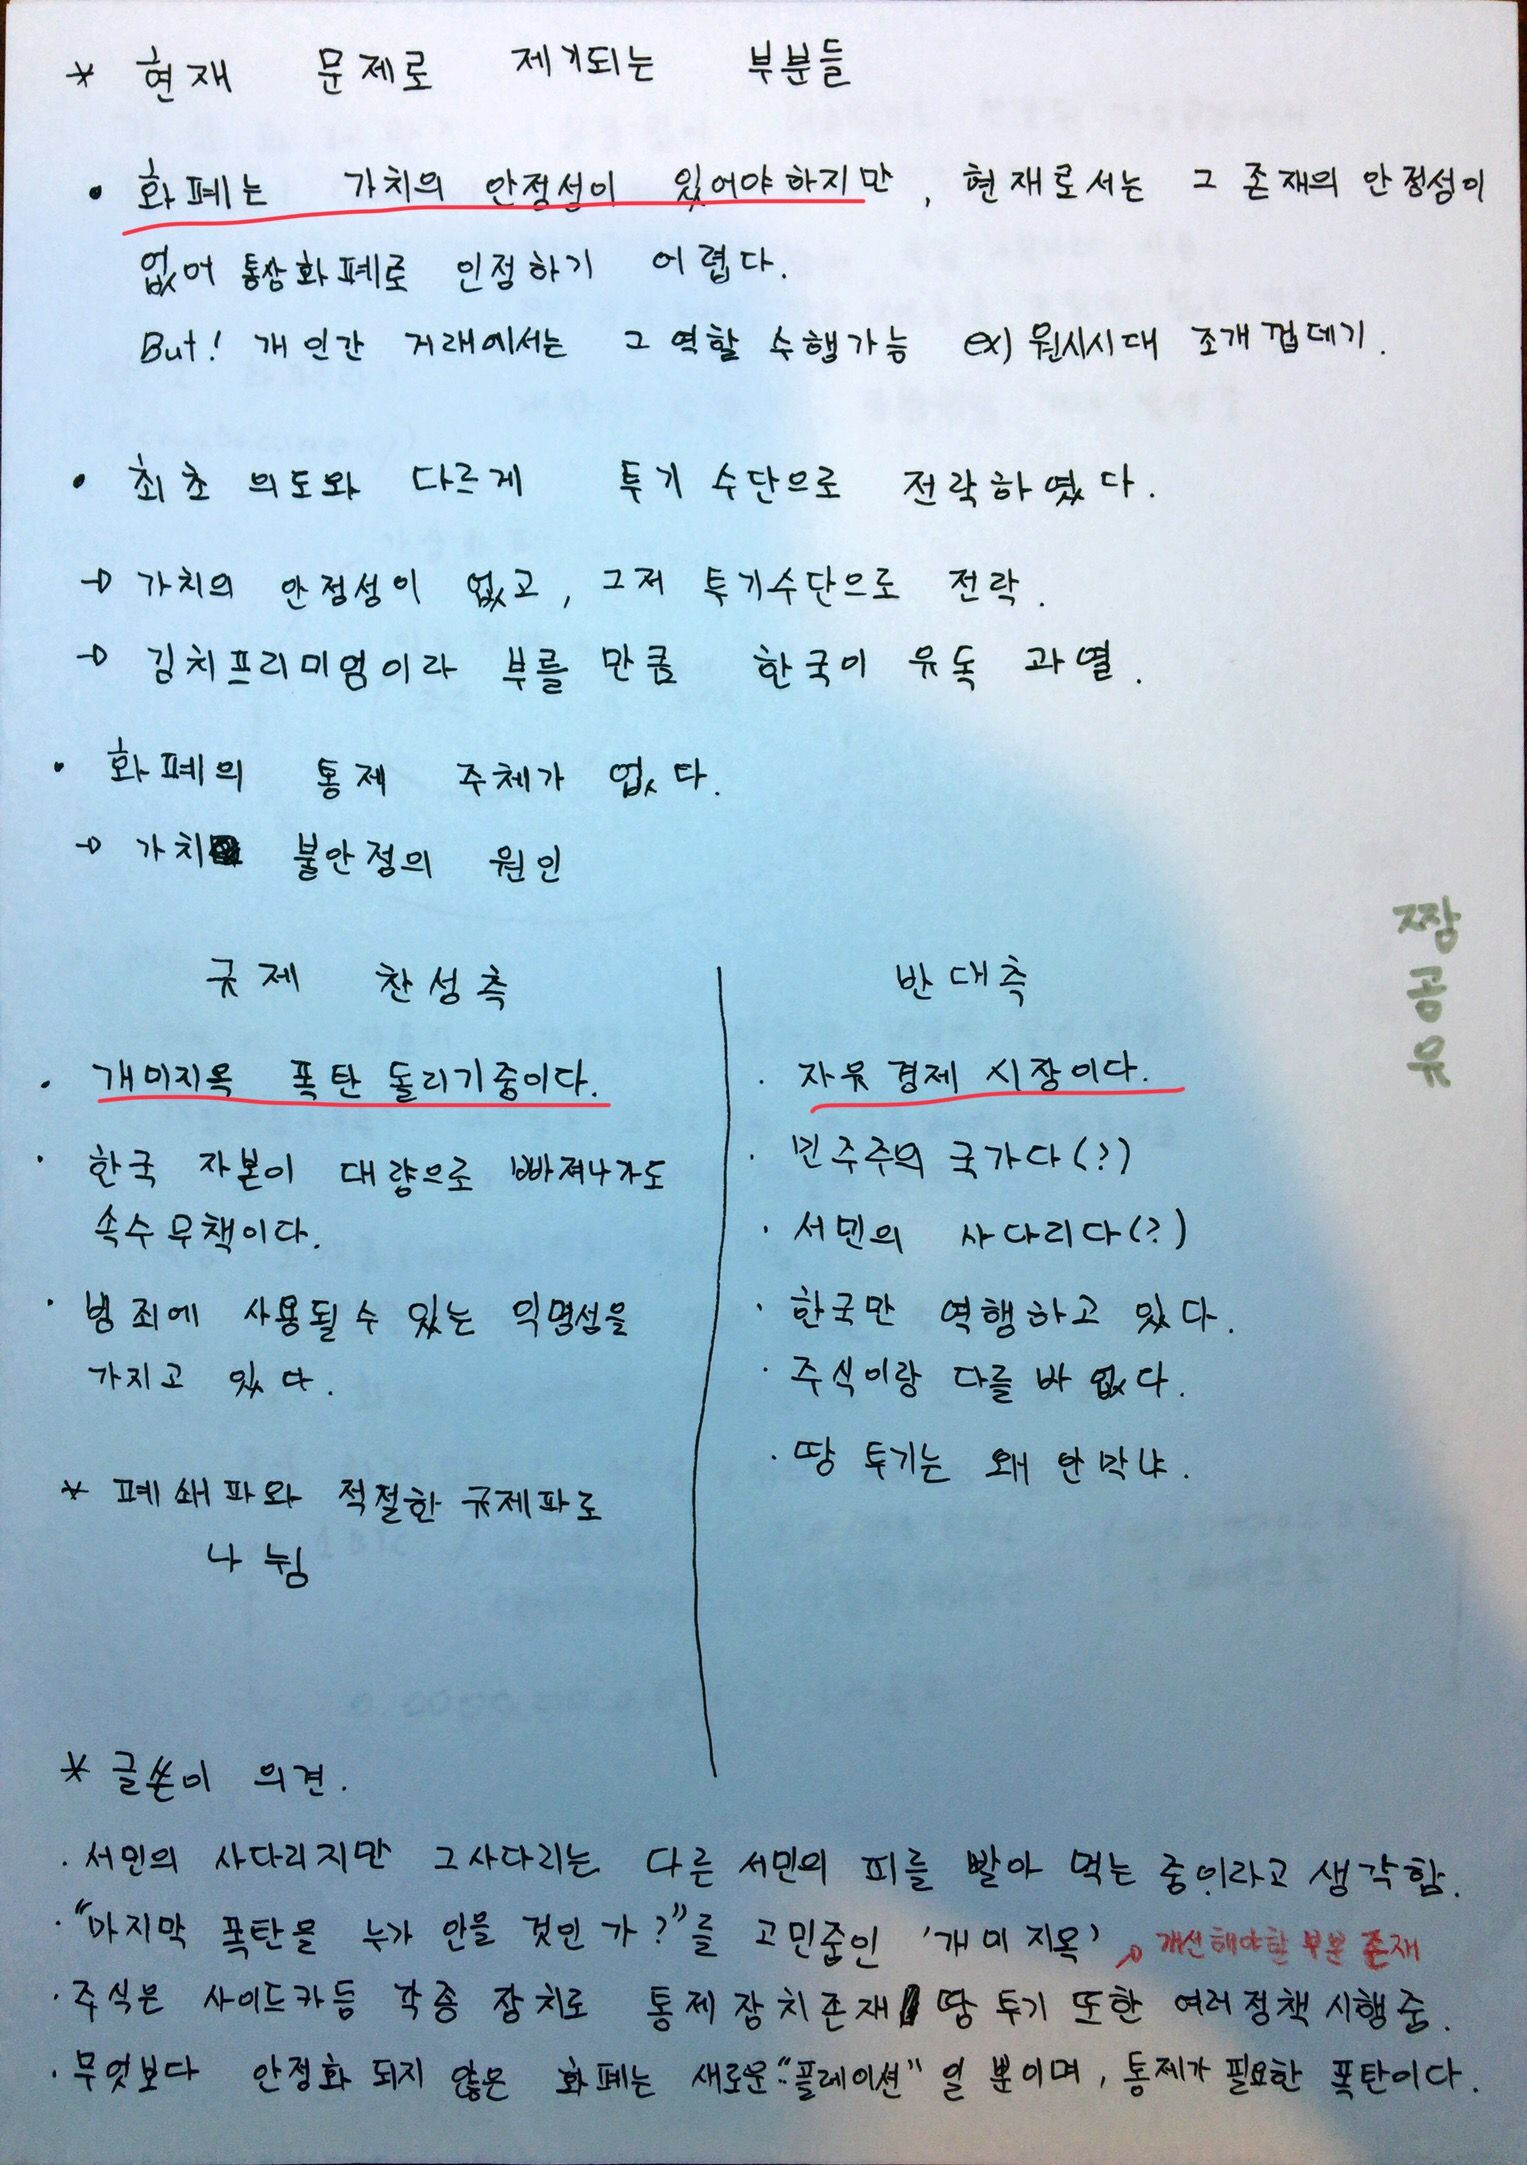 * 현재 문제로 제기되는 부분들
• 화폐는 가치의 안정성이 있어야하지만, 현재로서는 그 존재의 안정성이
없어 통상화폐로 인정하기 어렵다.
But! 개인간 거래에서는 그 역할 수행가능 ex) 원시시대 조개껍데기.
• 최초 의도와 다르게 투기 수단으로 전락하였다.
→ 가치의 안정성이 없고, 그저 투기수단으로 전락.
→ 김치프리미엄이라 부를 만큼 한국이 유독 과열.
• 화폐의 통제 주체가 없다.
→ 가치 불안정의 원인
규제 찬성측
• 개미지옥 폭탄 돌리기중이다.
• 한국 자본이 대량으로 빠져나가도
속수무책이다.
• 범죄에 사용될수 있는 익명성을
가지고 있다.
* 폐쇄파와 적절한 규제파로
나뉨
반대측
· 자유 경제 시장이다.
· 민주주의 국가다(?)
· 서민의 사다리다(?)
· 한국만 역행하고 있다.
· 주식이랑 다를 바 없다.
· 땅 투기는 왜 안막냐.
짱
공
유
* 글쓴이 의견.
· 서민의 사다리지만 그사다리는 다른 서민의 피를 빨아 먹는 중이라고 생각함.
· "마지막 폭탄을 누가 안을 것인가?"를 고민중인 '개미지옥' → 개선해야할 부분 존재
· 주식은 사이드카등 각종 장치로 통제장치존재 땅 투기 또한 여러정책 시행중.
· 무엇보다 안정화 되지 않은 화폐는 새로운 "플레이션" 일 뿐이며, 통제가 필요한 폭탄이다.